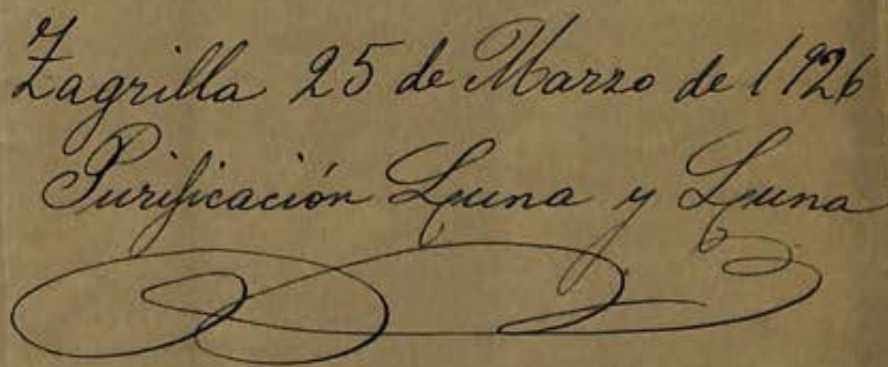 Zagrilla 25 de Marzo de 1926
Purificación Luna y Luna